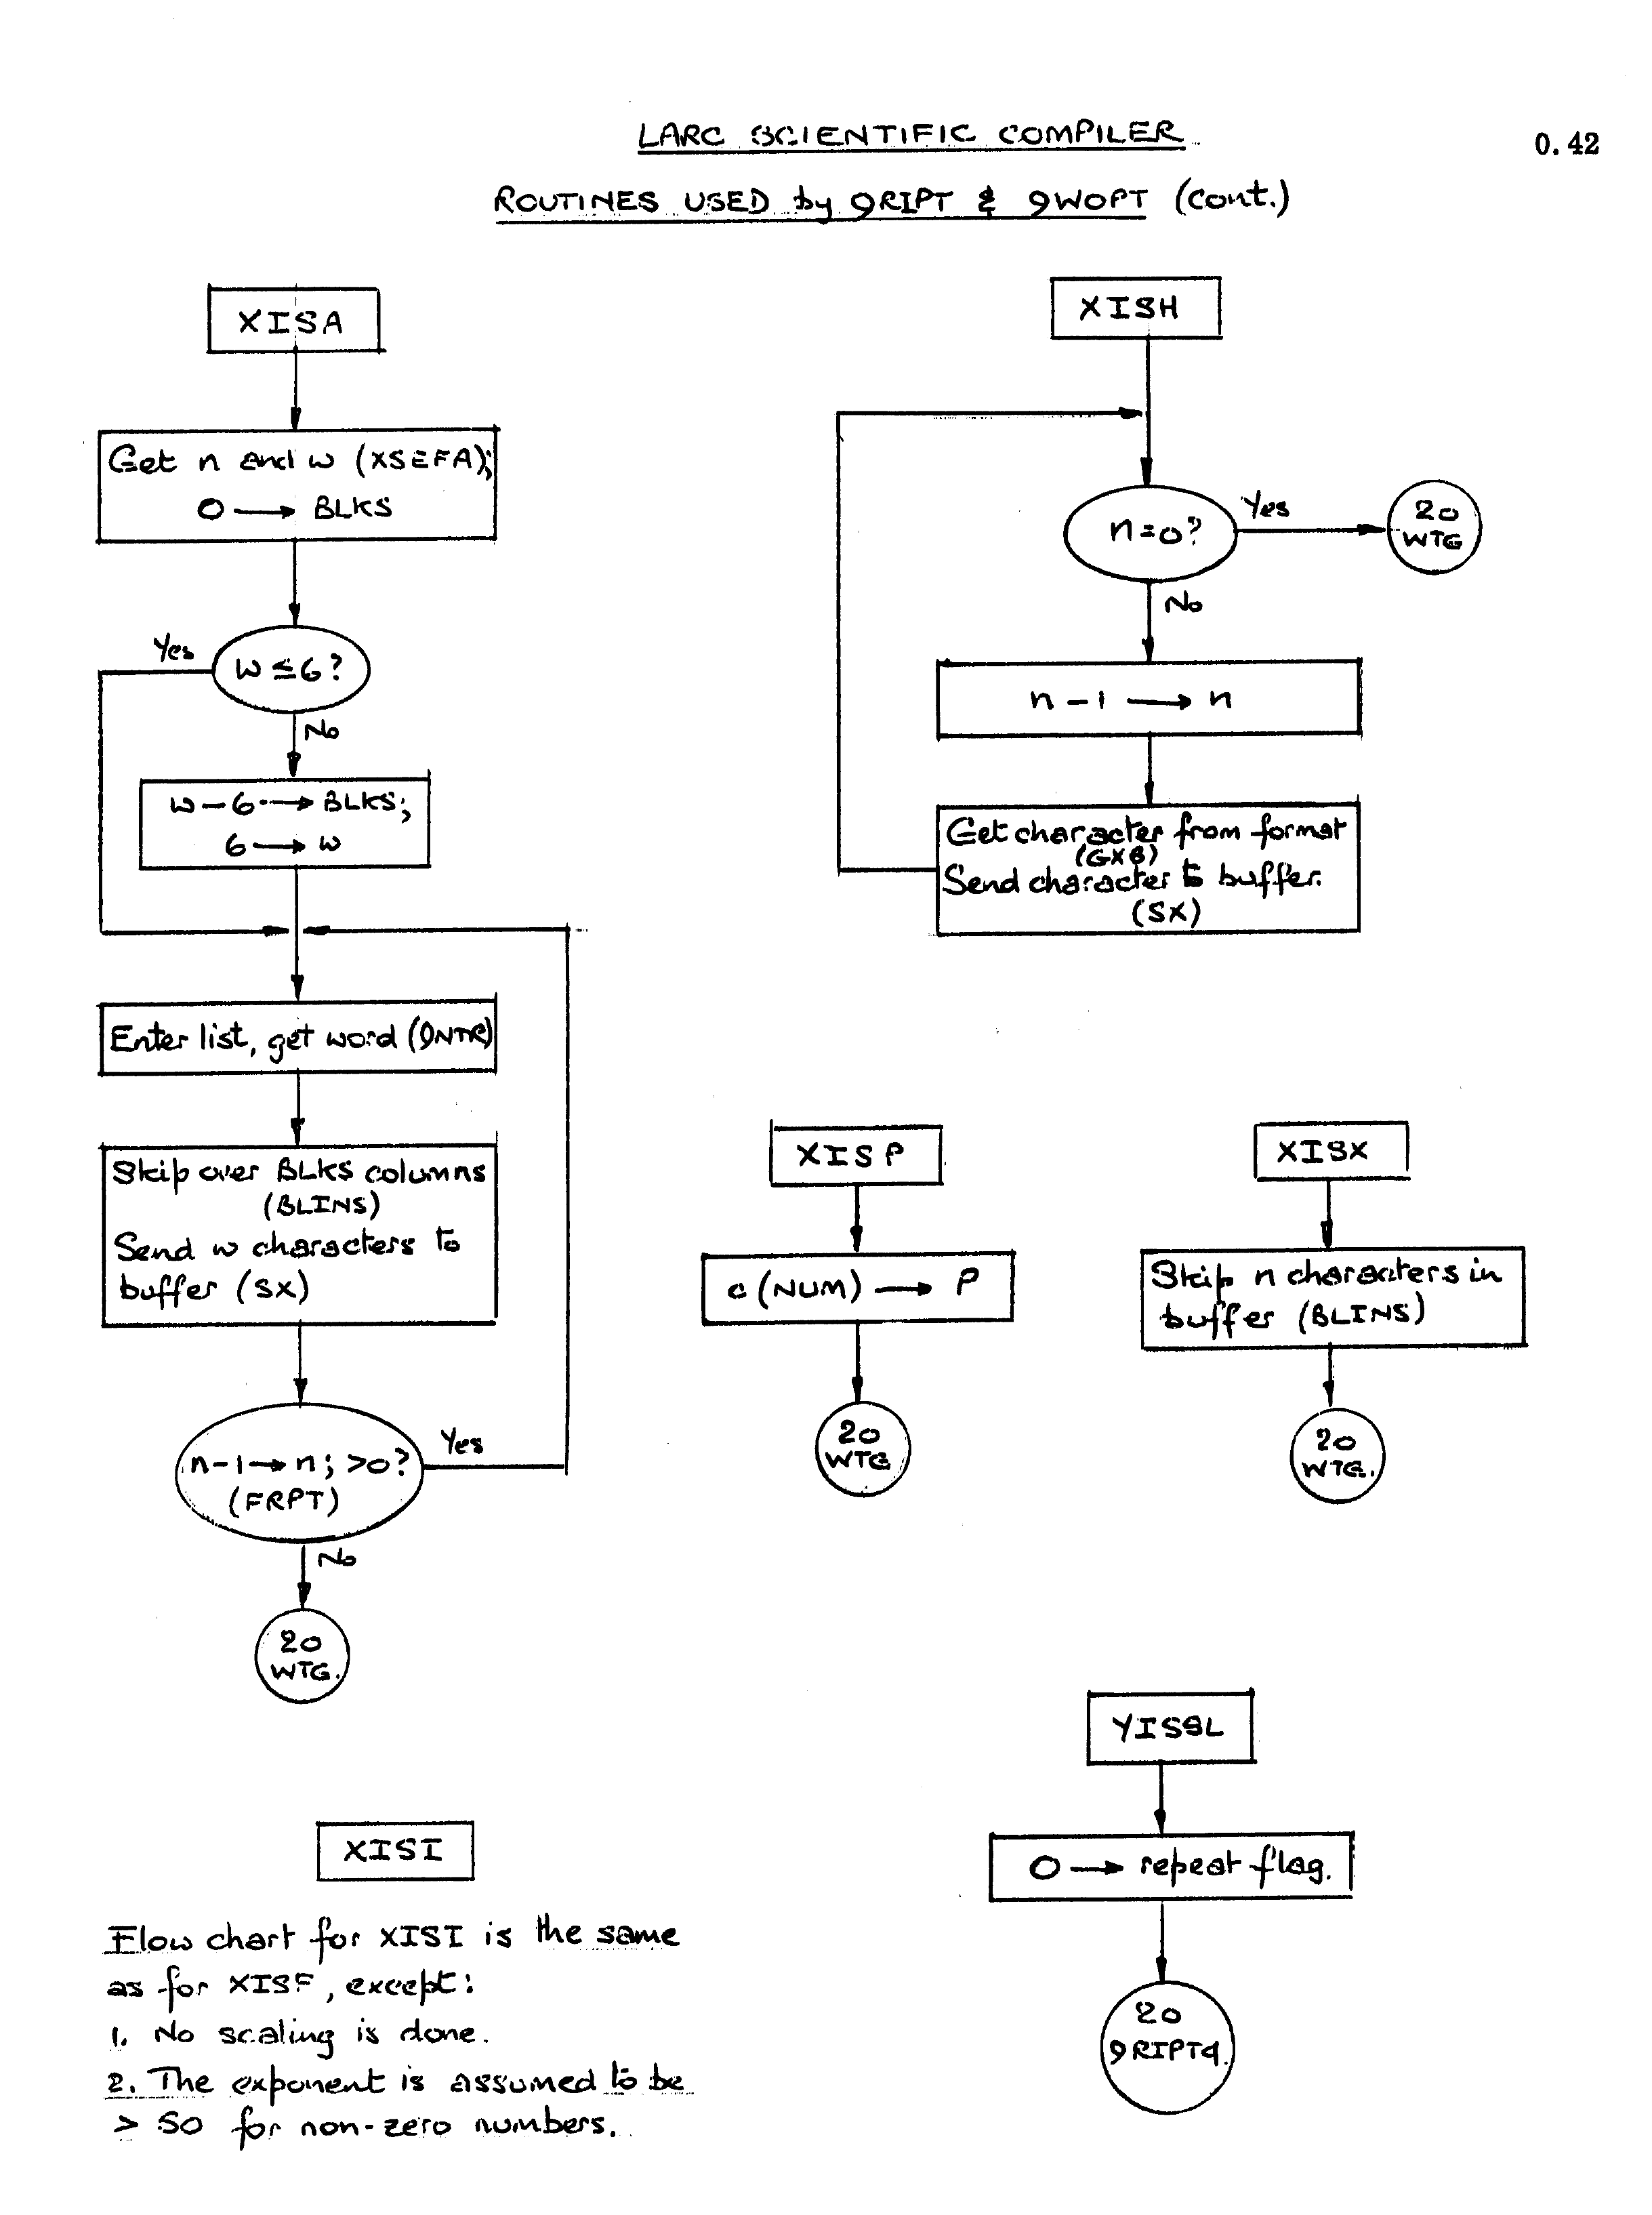 LARC SCIENTIFIC COMPILER
0.42
ROUTINES USED by 9RIPT & 9WOPT (cont.)
XISA
Get n and w (XSEFA);
0 → BLKS
w ≤ 6?
Yes
No
w – 6 → BLKS;
6 → w
Enter list, get word (9NTR)
Skip over BLKS columns
(BLINS)
Send w characters to
buffer (SX)
n-1 → n; >0?
(FRPT)
Yes
No
20
WTG.
XISH
n=0?
Yes
20
WTG
No
n – 1 → n
Get character from format
(GXB)
Send character to buffer.
(SX)
XISP
c (NUM) → P
20
WTG
XISX
Skip n characters in
buffer (BLINS)
20
WTG.
YISSL
0 → repeat flag.
20
9RIPT9.
XISI
Flow chart for XISI is the same
as for XISF, except:
1. No scaling is done.
2. The exponent is assumed to be
> 50 for non-zero numbers.